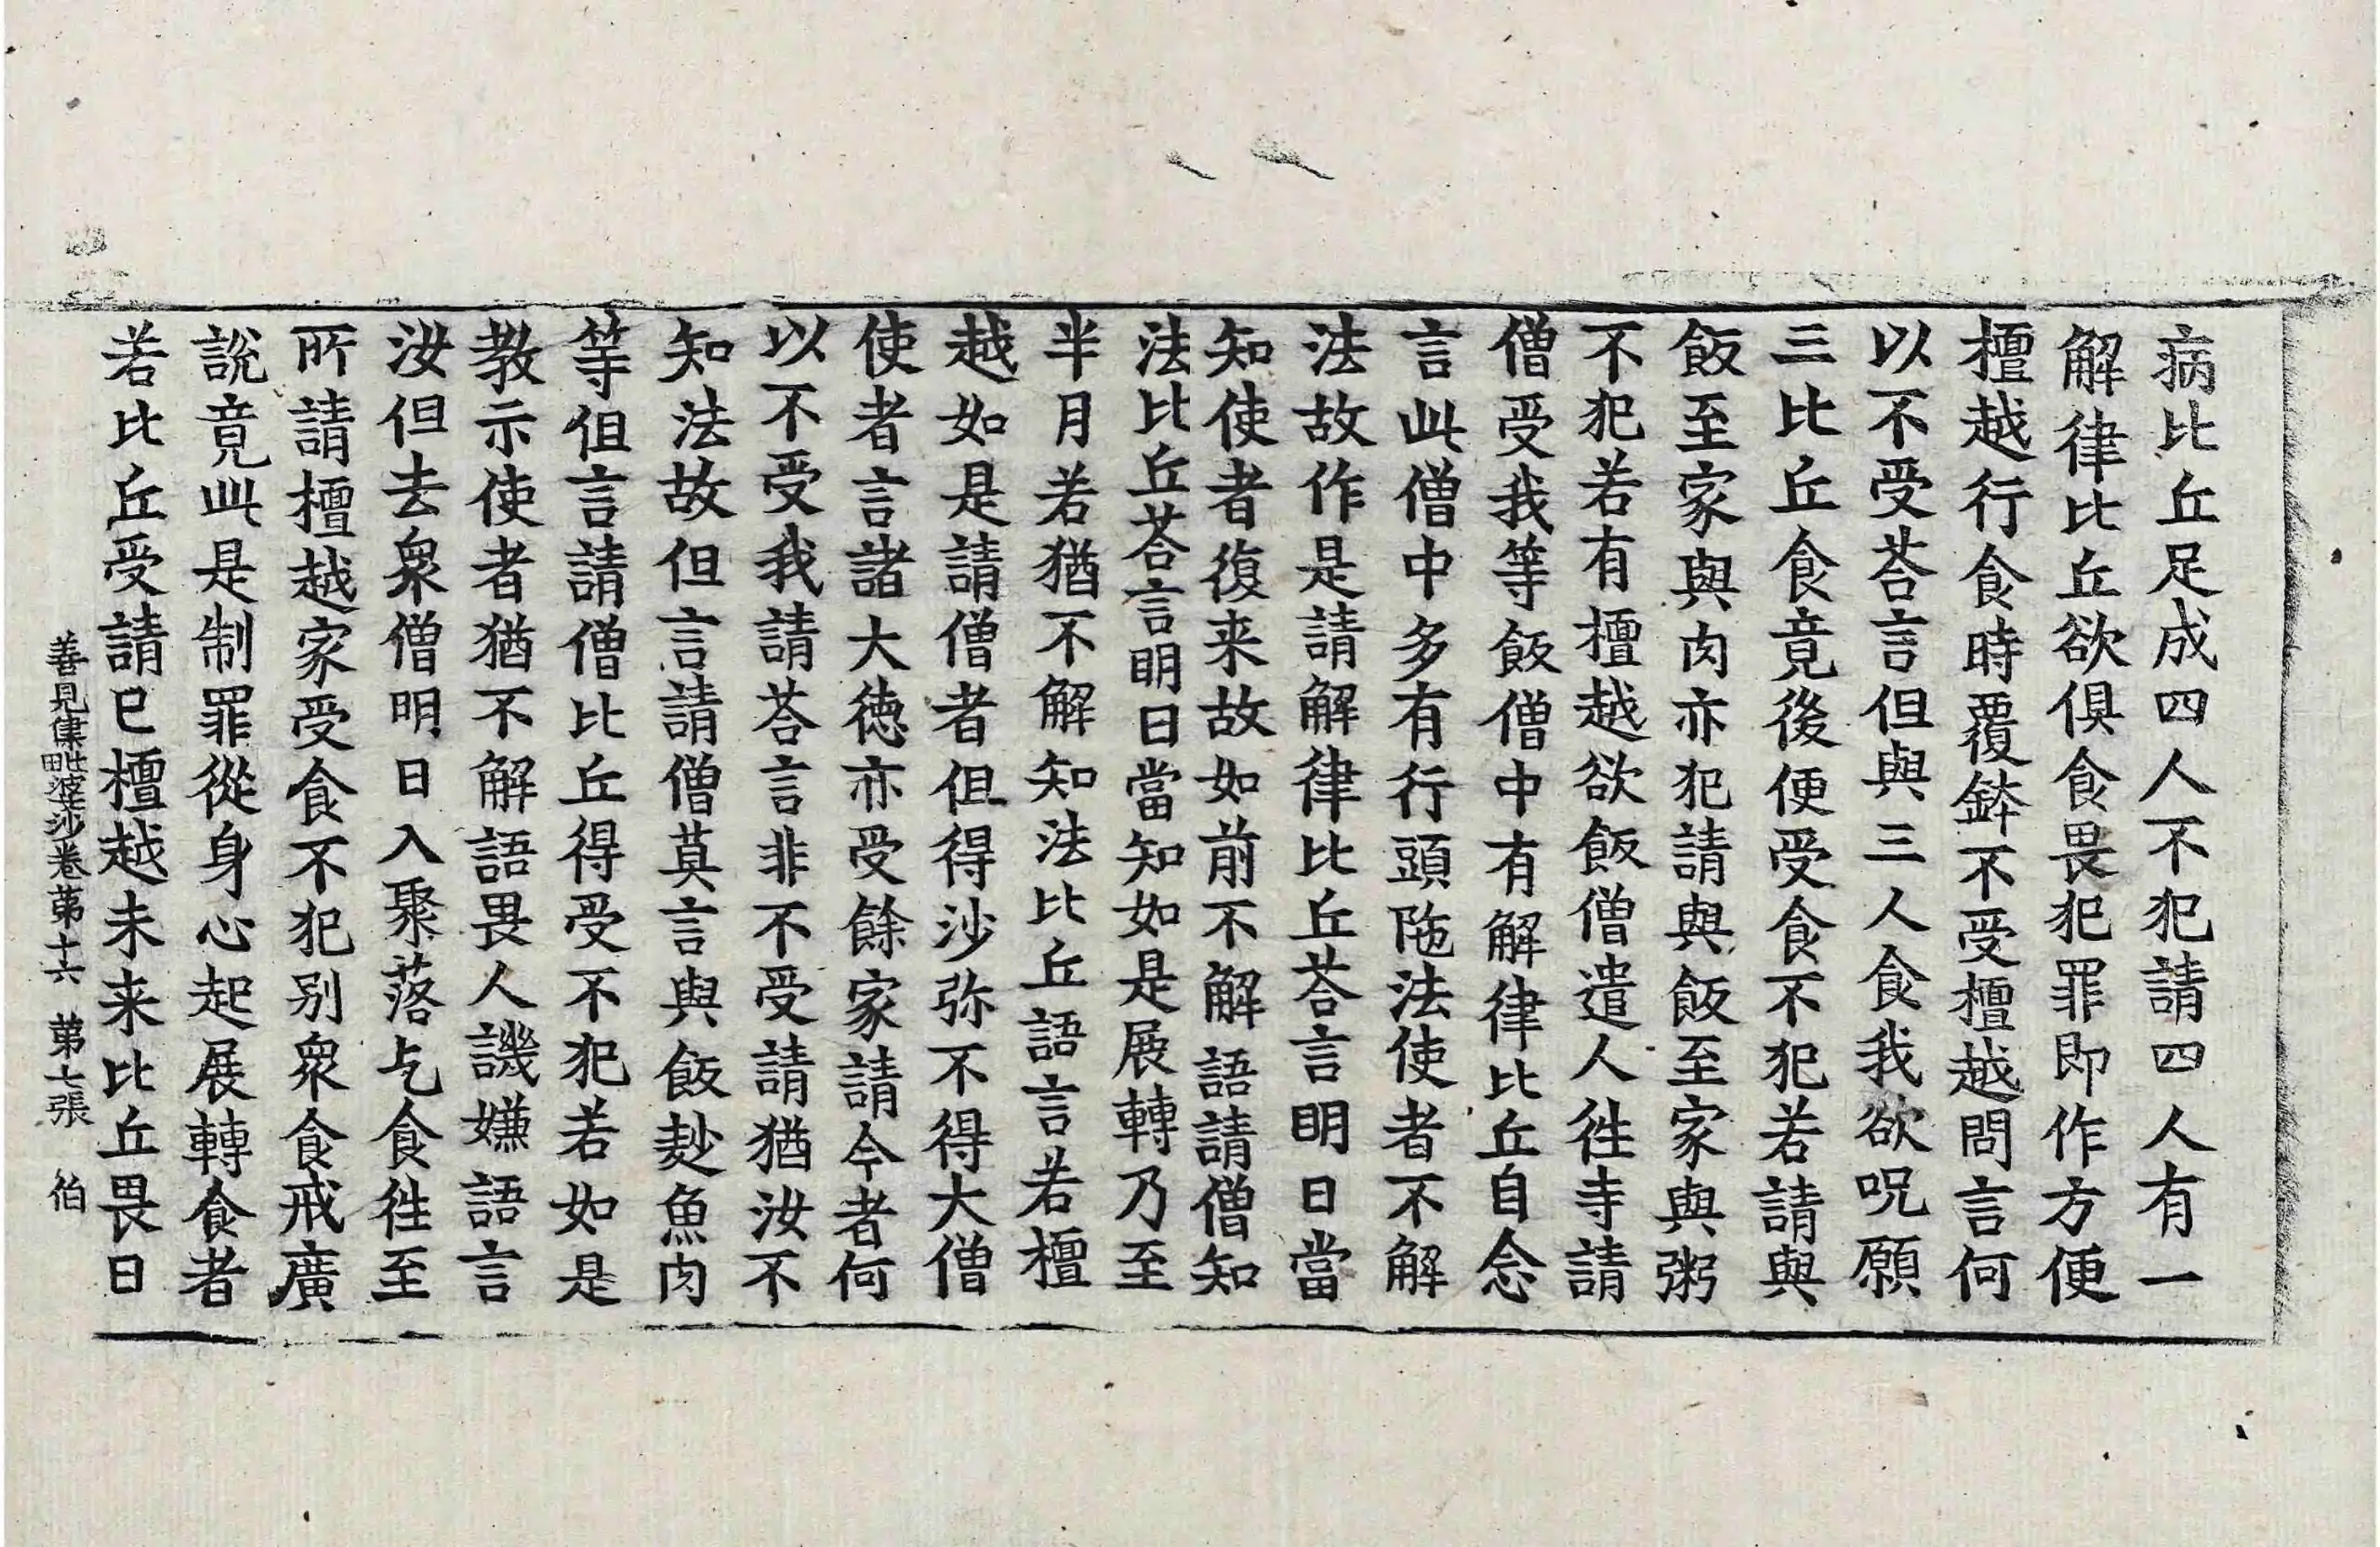 病比丘足成四人不犯請四人有一
解律比丘欲俱食畏犯罪即作方便
檀越行食時覆鉢不受檀越問言何
以不受荅言但與三人食我欲呪願
三比丘食竟後便受食不犯若請與
飯至家與肉亦犯請與飯至家與粥
不犯若有檀越欲飯僧遣人徃寺請
僧受我等飯僧中有解律比丘自念
言此僧中多有行頭陁法使者不解
法故作是請解律比丘荅言明日當
知使者復来故如前不解語請僧知
法比丘荅言明日當知如是展轉乃至
半月若猶不解知法比丘語言若檀
越如是請僧者但得沙弥不得大僧
使者言諸大徳亦受餘家請今者何
以不受我請荅言非不受請猶汝不
知法故但言請僧莫言與飯麨魚肉
等但言請僧比丘得受不犯若如是
教示使者猶不解語畏人譏嫌語言
汝但去衆僧明日入聚落乞食徃至
所請檀越家受食不犯别衆食戒廣
說竟此是制罪從身心起展轉食者
若比丘受請已檀越未来比丘畏日
善見律毗婆沙卷苐十六 苐七張 伯